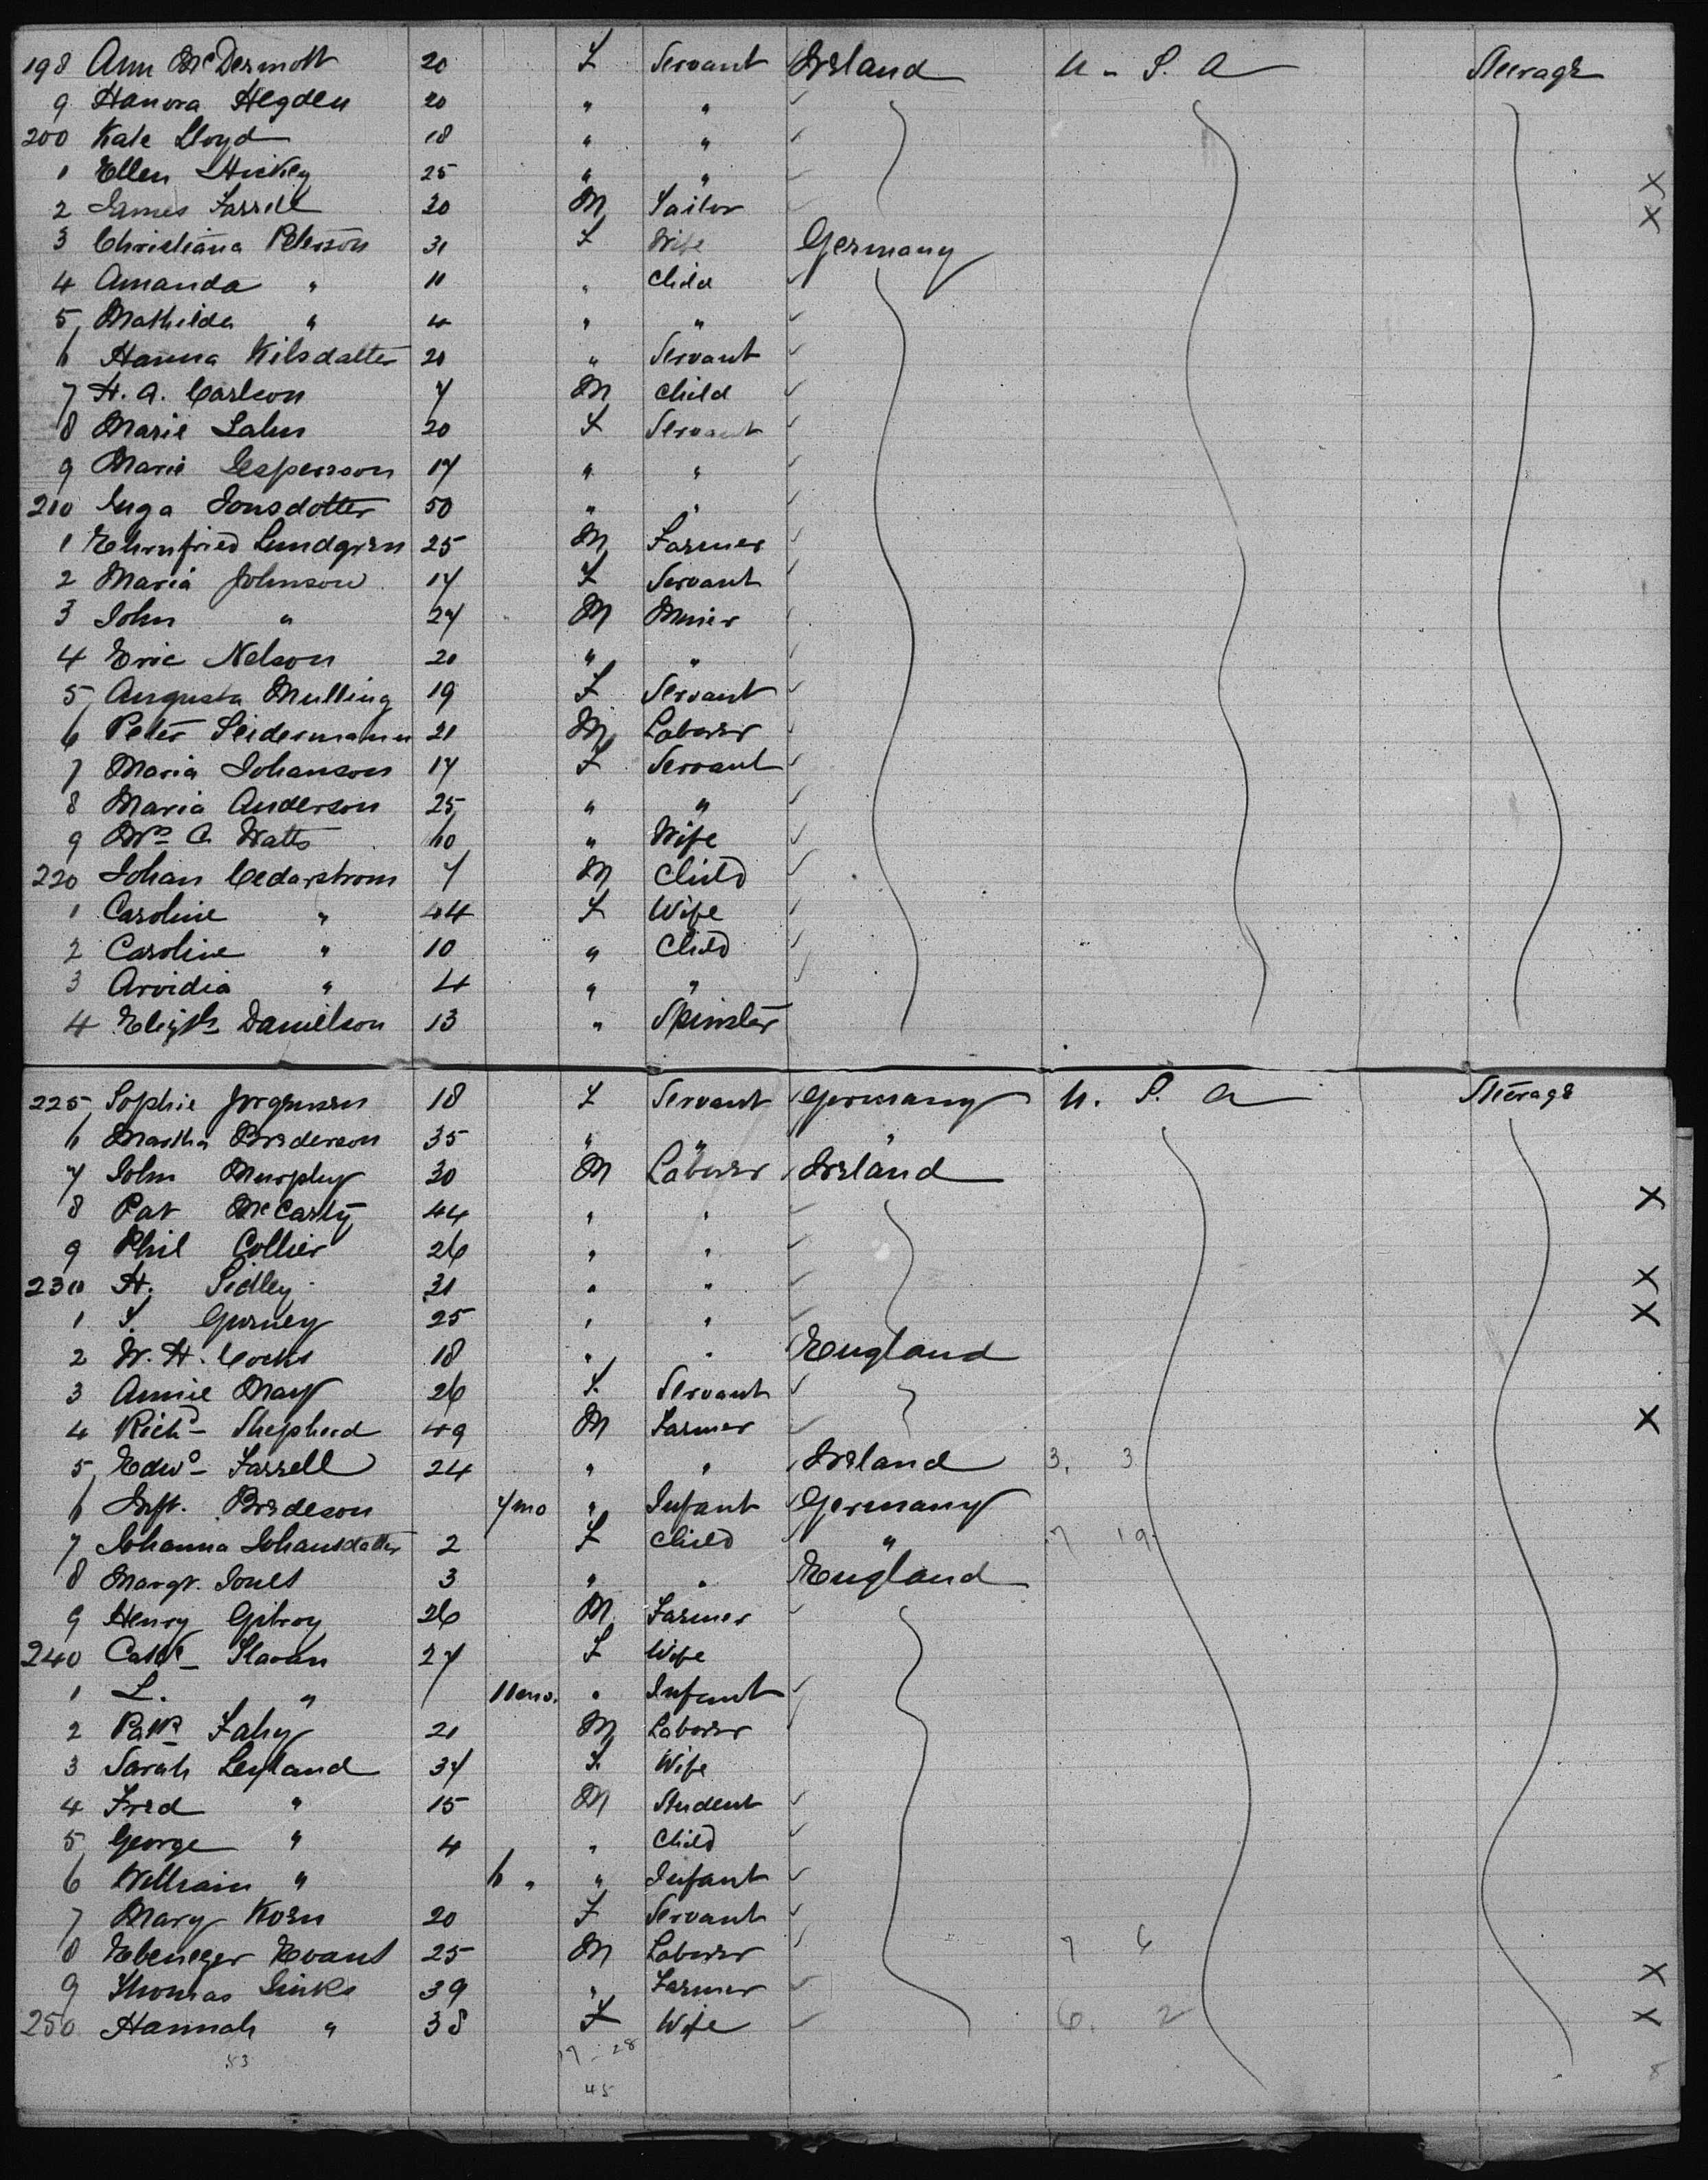 198 Ann McDermott 20 F Servant Ireland U. S. A Steerage
9 Hanora Hegden 20 " "
200 Kate Lloyd 18 " "
1 Ellen Hickey 25 " " X
2 James Farrell 30 M Tailor X
3 Christiana Peterson 31 F Wife Germany
4 Amanda " 11 " Child
5 Mathilda " 4 " "
6 Hanna Nilsdatter 20 " Servant
7 H. A. Carlson 7 M Child
8 Marie Lahn 20 F Servant
9 Marie Jesperson 17 " "
210 Inga Jonsdotter 50 " "
1 Ehrnfried Lundgren 25 M Farmer
2 Maria Johnson 17 F Servant
3 John " 27 M Miner
4 Eric Nelson 20 " "
5 Augusta Mulling 19 F Servant
6 Peter Seidermann 21 M Laborer
7 Maria Johanson 17 F Servant
8 Maria Anderson 25 " "
9 Mrs C Watts 60 " Wife
220 Johan Cedarstrom 7 M Child
1 Caroline " 44 F Wife
2 Caroline " 10 " Child
3 Arvidia " 4 " "
4 Elizth Danielson 13 " Spinster
225 Sophie Jorgensen 18 F Servant Germany U. S. A Steerage
6 Martha Brederson 35 " " "
7 John Murphy 30 M Laborer Ireland
8 Pat McCarty 44 " " X
9 Phil Collier 26 " "
230 H. Sidley 31 " " X
1 T. Gurney 25 " " X
2 W. H. Cocks 18 " " England
3 Annie May 26 F. Servant
4 Richd Shepherd 49 M Farmer X
5 Edwd Farrell 24 " " Ireland 3. 3
6 Inft. Brideson 7 mo " Infant Germany
7 Johanna Johansdatter 2 F Child " 7 19
8 Margt. Jones 3 " " England
9 Henry Gilroy 26 M Farmer
240 Cathe Slavan 27 F Wife
1 L. " 11 mo. " Infant
2 Patk Fahy 21 M Laborer
3 Sarah Leyland 37 F. Wife
4 Fred " 15 M Student
5 George " 4 " Child
6 William " 6 " " Infant
7 Mary Korn 20 F Servant
8 Ebenezer Evans 25 M Laborer 7 6
9 Thomas Jinks 39 " Farmer X
250 Hannah " 38 F Wife 6. 2 X
53 17 - 28 8
45